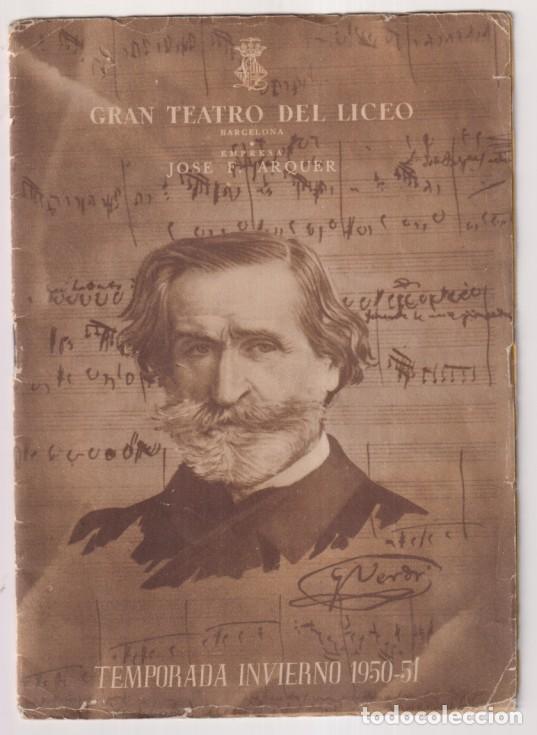 GRAN TEATRO DEL LICEO
BARCELONA
EMPRESA
JOSE F. ARQUER
G Verdi
TEMPORADA INVIERNO 1950-51
todocoleccion.net